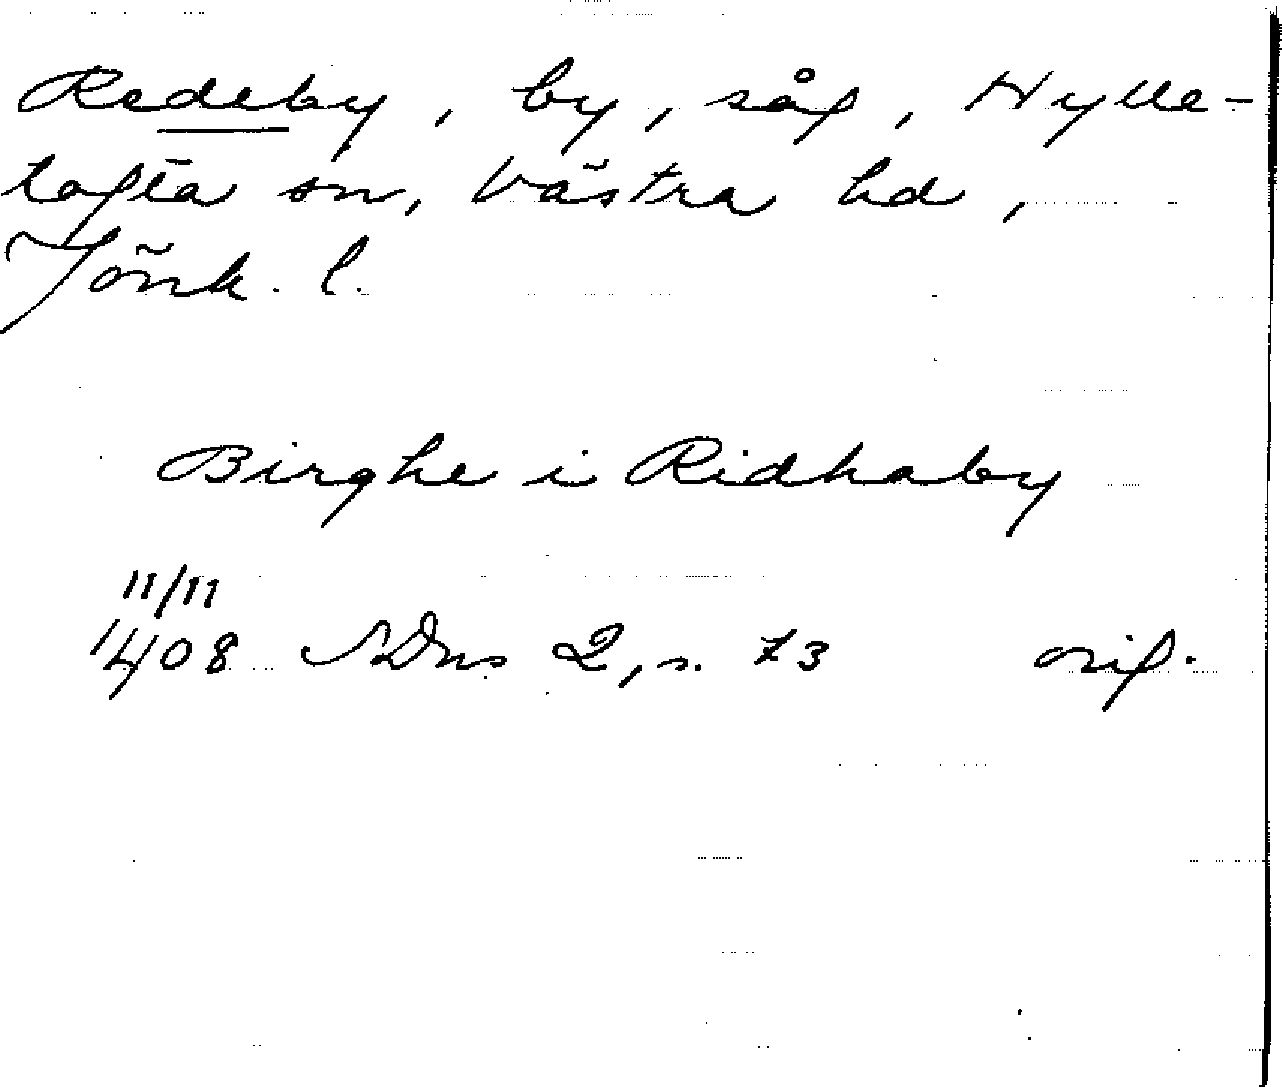 Redeby, by, såg, Hylle-
tofta sn, Västra hd,
Jönk. l.
Birghe i Ridhaby
11/11
1408 SDns 2, s. 73 orig.